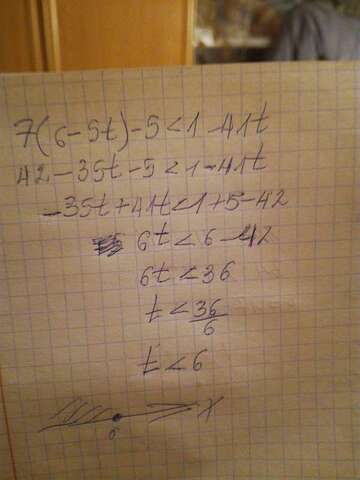 7(6-5t)-5<1-41t
42-35t-5<1-41t
-35t+41t<1+5-42
6t<6-42
6t<36
t<36/6
t<6
6 X